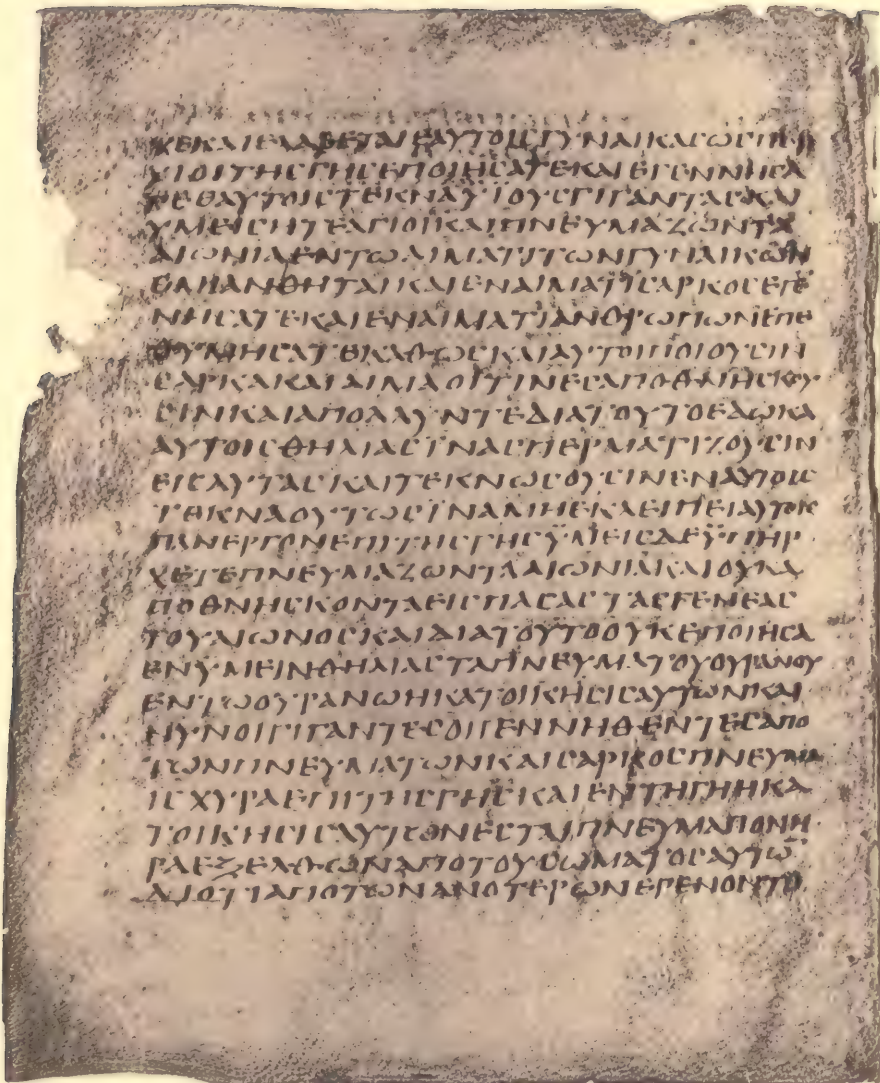 ΧΕΚΑΙΕΛΑΒΕΤΑΙΕΑΥΤΟΙϹΓΥΝΑΙΚΑϹΩϹΠΕΡ
ΥΙΟΙΤΗϹΓΗϹΕΠΟΙΗϹΑΤΕΚΑΙΕΓΕΝΝΗϹΑ
ΤΕΘΑΥΤΟΙϹΤΕΚΝΑΥΙΟΥϹΓΙΓΑΝΤΑϹΚΑΙ
ΥΜΕΙϹΗΤΕΑΓΙΟΙΚΑΙΠΝΕΥΜΑΖΩΝΤΑ
ΑΙΩΝΙΑΕΝΤΩΑΙΜΑΤΙΤΩΝΓΥΝΑΙΚΩΝ
ΕΜΙΑΝΘΗΤΑΙΚΑΙΕΝΑΙΜΑΤΙϹΑΡΚΟϹΕΓΕ
ΝΗϹΑΤΕΚΑΙΕΝΑΙΜΑΤΙΑΝΘΡΩΠΩΝΕΠΕ
ΘΥΜΗϹΑΤΕΚΑΘΩϹΚΑΙΑΥΤΟΙΠΟΙΟΥϹΙΝ
ϹΑΡΚΑΚΑΙΑΙΜΑΟΙΤΙΝΕϹΑΠΟΘΝΗϹΚΟΥ
ϹΙΝΚΑΙΑΠΟΛΛΥΝΤΕΔΙΑΤΟΥΤΟΕΔΩΚΑ
ΑΥΤΟΙϹΘΗΛΙΑϹΙΝΑϹΠΕΡΜΑΤΙΖΟΥϹΙΝ
ΕΙϹΑΥΤΑϹΚΑΙΤΕΚΝΩϹΟΥϹΙΝΕΝΑΥΤΑΙϹ
ΤΕΚΝΑΟΥΤΩϹΪΝΑΜΗΕΚΛΕΙΠΕΙΑΥΤΟΙϹ
ΠΑΝΕΡΓΟΝΕΠΙΤΗϹΓΗϹΫΜΕΙϹΔΕΫΠΗΡ
ΧΕΤΕΠΝΕΥΜΑΖΩΝΤΑΑΙΩΝΙΑΚΑΙΟΥΚΑ
ΠΟΘΝΗϹΚΟΝΤΑΕΙϹΠΑϹΑϹΤΑϹΓΕΝΕΑϹ
ΤΟΥΑΙΩΝΟϹΚΑΙΔΙΑΤΟΥΤΟΟΥΚΕΠΟΙΗϹΑ
ΕΝΥΜΕΙΝΘΗΛΙΑϹΤΑΠΝΕΥΜΑΤΟΥΟΥΡΑΝΟΥ
ΕΝΤΩΟΥΡΑΝΩΗΚΑΤΟΙΚΗϹΙϹΑΥΤΩΝΚΑΙ
ΝΥΝΟΙΓΙΓΑΝΤΕϹΟΙΓΕΝΝΗΘΕΝΤΕϹΑΠΟ
ΤΩΝΠΝΕΥΜΑΤΩΝΚΑΙϹΑΡΚΟϹΠΝΕΥΜΑ
ΙϹΧΥΡΑΕΠΙΤΗϹΓΗϹΚΑΙΕΝΤΗΓΗΗΚΑ
ΤΟΙΚΗϹΙϹΑΥΤΩΝΕϹΤΑΙΠΝΕΥΜΑΠΟΝΗ
ΡΑΕΞΕΛΘΩΝΑΠΟΤΟΥϹΩΜΑΤΟϹΑΥΤΩ̅
ΔΙΟΤΙΑΠΟΤΩΝΑΝΟΤΕΡΩΝΕΓΕΝΟΝΤΟ